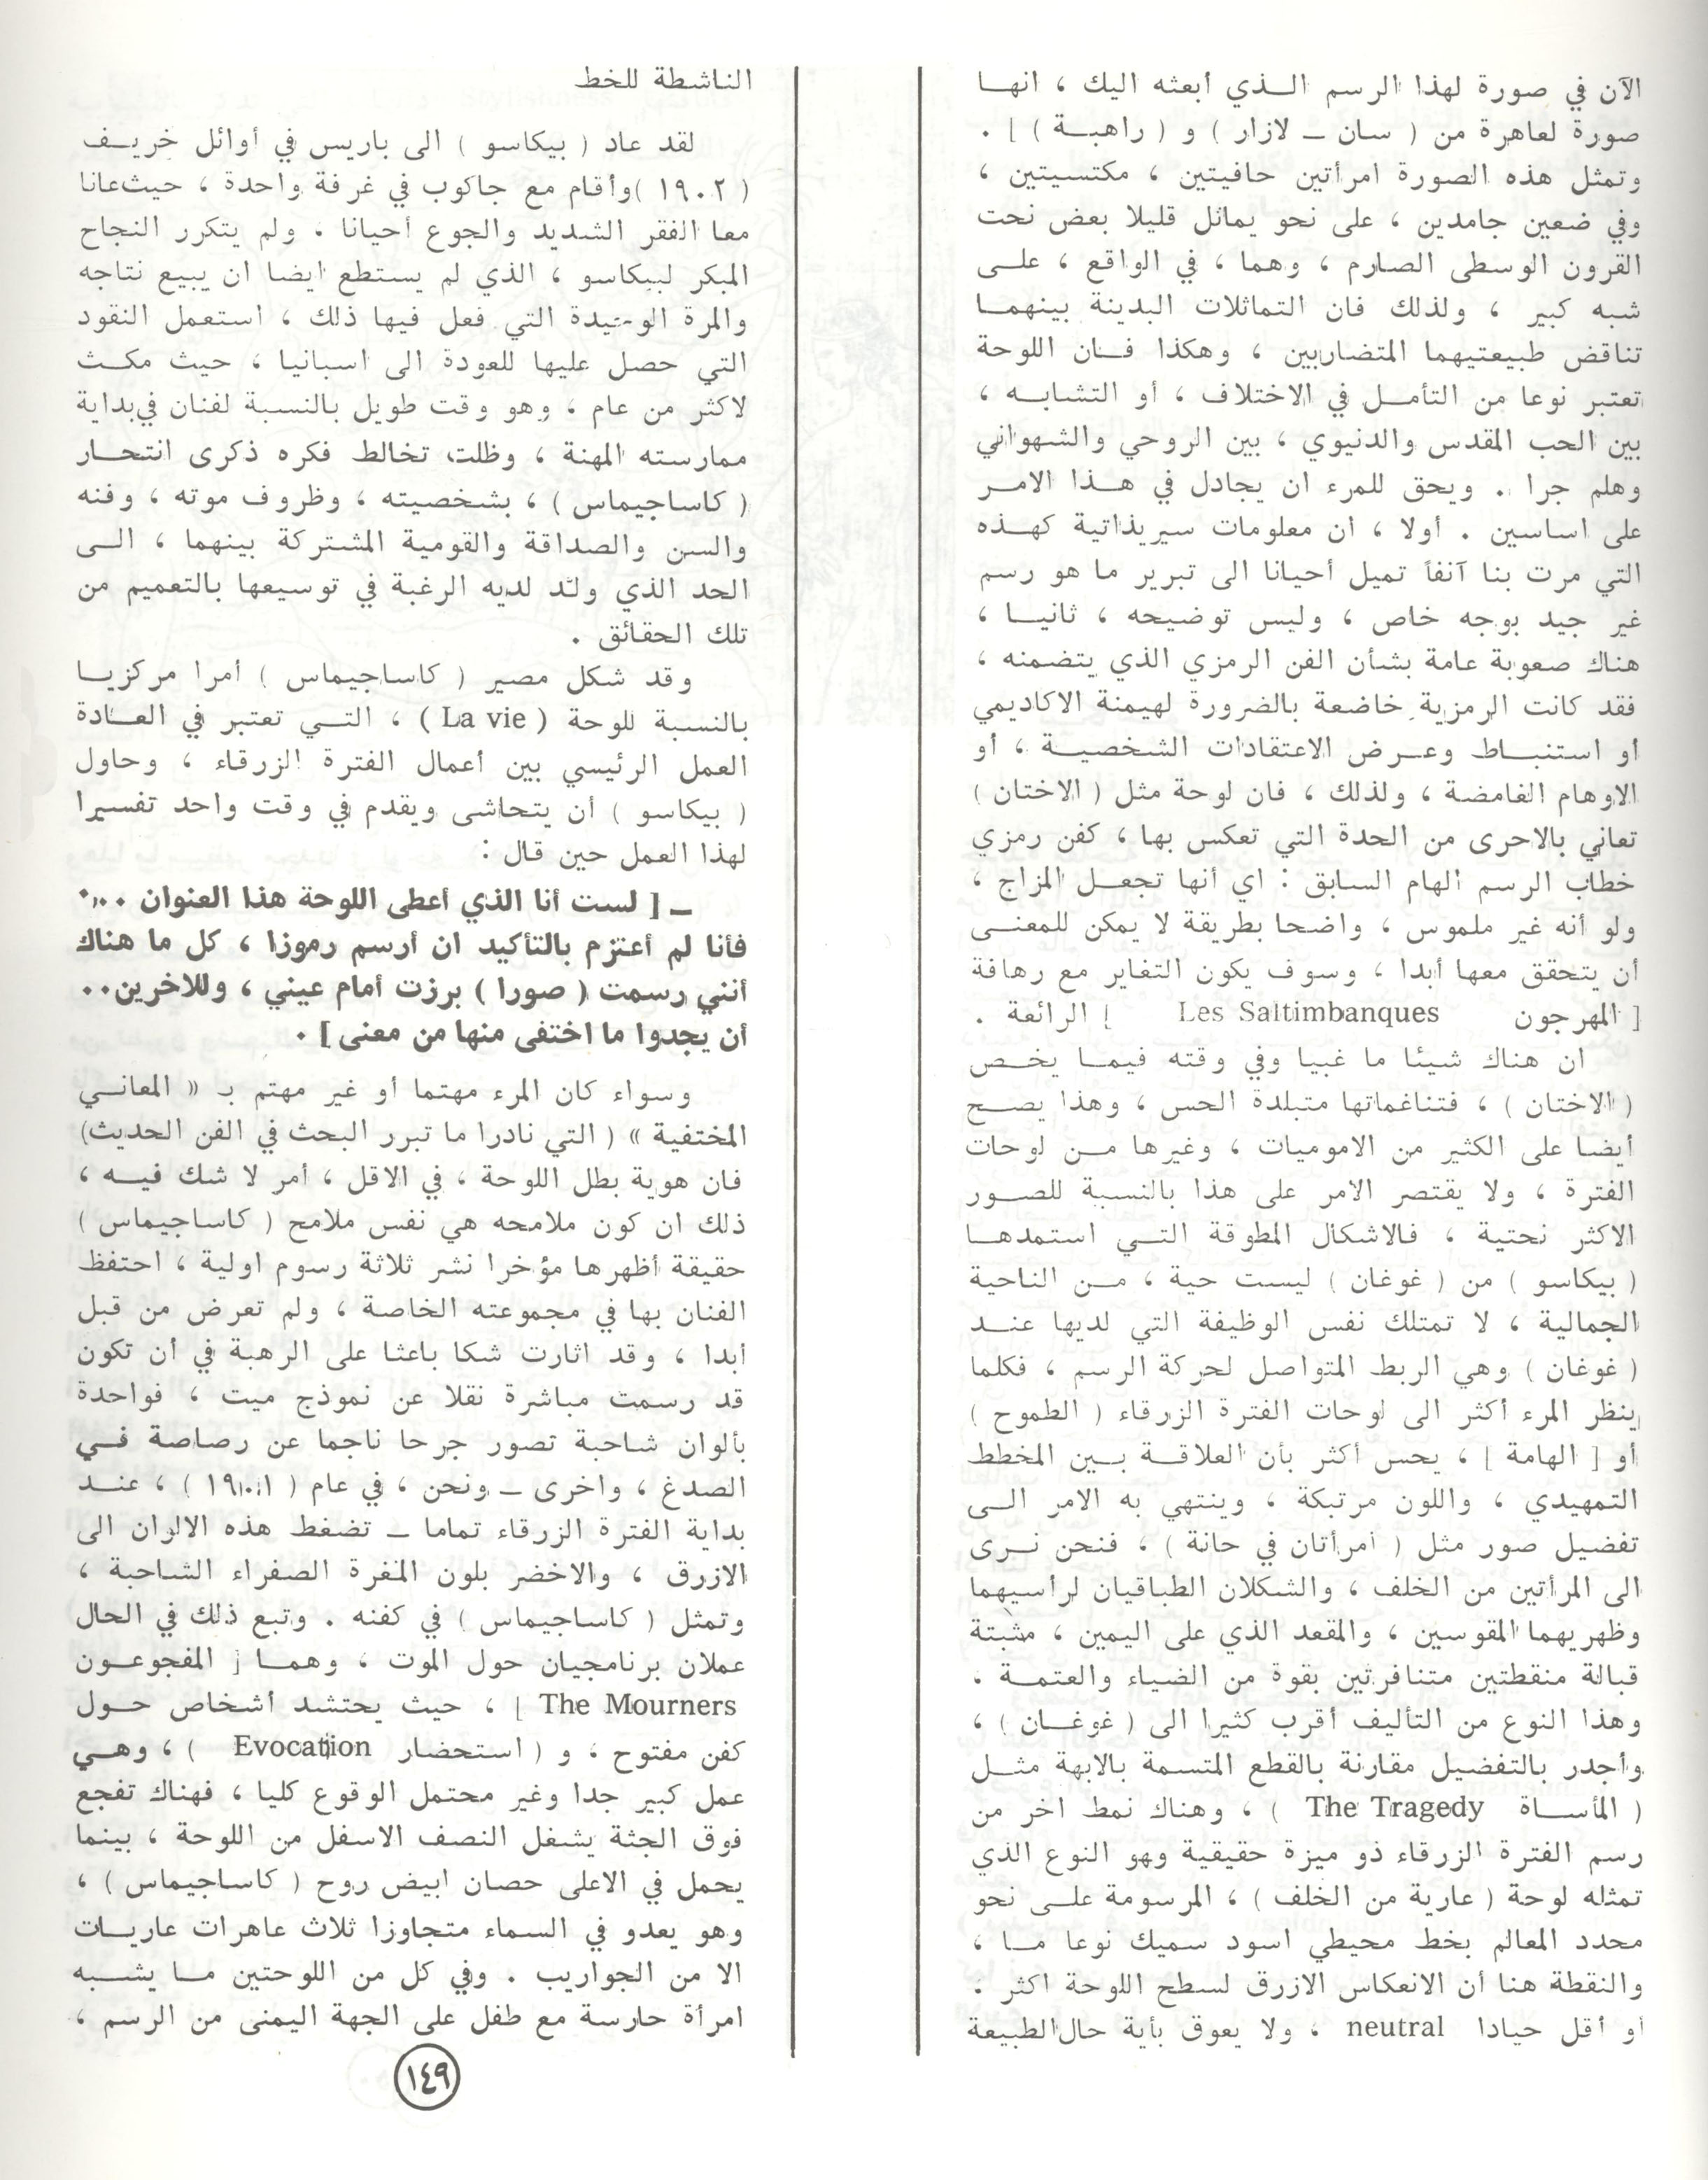 الآن في صورة لهذا الرسم الـذي أبعثه اليك ، انهـا
صورة لعاهرة من ( سان ـ لازار ) و ( راهبـة ) ] .
وتمثل هذه الصورة امرأتين حافيتين ، مكتسيتين ،
وفي ضعين جامدين ، على نحو يماثل قليلا بعض نحت
القرون الوسطى الصارم ، وهما ، في الواقع ، علـى
شبه كبير ، ولذلك فان التماثلات البدينة بينهمـا
تناقض طبيعتيهما المتضاربين ، وهكذا فـان اللوحة
تعتبر نوعا من التأمـل في الاختلاف ، أو التشابـه ،
بين الحب المقدس والدنيوي ، بين الروحي والشهواني
وهلم جرا . ويحق للمرء ان يجادل في هـذا الامـر
على اساسين . أولا ، ان معلومات سيريذاتية كهـذه
التي مرت بنا آنفاً تميل أحيانا الى تبرير ما هو رسم
غير جيد بوجه خاص ، وليس توضيحه ، ثانيـا ،
هناك صعوبة عامة بشأن الفن الرمزي الذي يتضمنه ،
فقد كانت الرمزية خاضعة بالضرورة لهيمنة الاكاديمي
أو استنبـاط وعـرض الاعتقادات الشخصيـة ، أو
الاوهام الغامضة ، ولذلك ، فان لوحة مثل ( الاختان )
تعاني بالاحرى من الحدة التي تعكس بها ، كفن رمزي
خطاب الرسم الهام السابق : اي أنها تجعـل المزاج ،
ولو أنه غير ملموس ، واضحا بطريقة لا يمكن للمعنـى
أن يتحقق معها أبدا ، وسوف يكون التغاير مع رهافة
[ المهرجون Les Saltimbanques ] الرائعة .
ان هناك شيئا ما غبيا وفي وقته فيمـا يخـص
( الاختان ) ، فتناغماتها متبلدة الحس ، وهذا يصـح
أيضا على الكثير من الاموميات ، وغيرها مـن لوحات
الفترة ، ولا يقتصر الامر على هذا بالنسبة للصـور
الاكثر نحتية ، فالاشكال المطوقة التـي استمدهـا
( بيكاسو ) من ( غوغان ) ليست حية ، مـن الناحية
الجمالية ، لا تمتلك نفس الوظيفة التي لديها عنـد
( غوغان ) وهي الربط المتواصل لحركة الرسم ، فكلما
ينظر المرء أكثر الى لوحات الفترة الزرقاء ( الطموح )
أو [ الهامة ] ، يحس أكثر بأن العلاقـة بـين المخطط
التمهيدي ، واللون مرتبكة ، وينتهي به الامر الـى
تفضيل صور مثل ( امرأتان في حانة ) ، فنحن نـرى
الى المرأتين من الخلف ، والشكلان الطباقيان لرأسيهما
وظهريهما المقوسين ، والمقعد الذي على اليمين ، مثبتة
قبالة منقطتين متنافرتين بقوة من الضياء والعتمـة .
وهذا النوع من التأليف أقرب كثيرا الى ( غوغـان ) ،
وأجدر بالتفضيل مقارنة بالقطع المتسمة بالابهة مثـل
( المأسـاة The Tragedy ) ، وهناك نمط اخر من
رسم الفترة الزرقاء ذو ميزة حقيقية وهو النوع الذي
تمثله لوحة ( عارية من الخلف ) ، المرسومة علـى نحو
محدد المعالم بخط محيطي اسود سميك نوعا مـا ،
والنقطة هنا أن الانعكاس الازرق لسطح اللوحة اكثر :
أو أقل حيادا neutral ، ولا يعوق بأية حال الطبيعة
الناشطة للخط
لقد عاد ( بيكاسو ) الى باريس في أوائل خريـف
( ١٩٠٢ ) وأقام مع جاكوب في غرفة واحدة ، حيث عانا
معا الفقر الشديد والجوع أحيانا . ولم يتكرر النجاح
المبكر لبيكاسو ، الذي لم يستطع ايضا ان يبيع نتاجه
والمرة الوحيدة التي فعل فيها ذلك ، استعمل النقود
التي حصل عليها للعودة الى اسبانيا ، حيث مكـث
لاكثر من عام ، وهو وقت طويل بالنسبة لفنان في بداية
ممارسته المهنة ، وظلت تخالط فكره ذكرى انتحـار
( كاساجيماس ) ، بشخصيته ، وظروف موته ، وفنه
والسن والصداقة والقومية المشتركة بينهما ، الـى
الحد الذي ولد لديه الرغبة في توسيعها بالتعميم من
تلك الحقائق .
وقد شكل مصير ( كاساجيماس ) امرا مركزيـا
بالنسبة للوحة ( La vie ) ، التـي تعتبر في العـادة
العمل الرئيسي بين أعمال الفترة الزرقاء ، وحاول
( بيكاسو ) أن يتحاشى ويقدم في وقت واحد تفسيرا
لهذا العمل حين قال :
ـ [ لست أنا الذي أعطى اللوحة هذا العنوان ...
فأنا لم أعتزم بالتأكيد ان أرسم رموزا ، كل ما هناك
أنني رسمت ( صورا ) برزت أمام عيني ، وللاخرين..
أن يجدوا ما اختفى منها من معنى ] .
وسواء كان المرء مهتما أو غير مهتم بـ « المعانـي
المختفية » ( التي نادرا ما تبرر البحث في الفن الحديث)
فان هوية بطل اللوحة ، في الاقل ، أمر لا شك فيـه ،
ذلك ان كون ملامحه هي نفس ملامح ( كاساجيماس )
حقيقة أظهرها مؤخرا نشر ثلاثة رسوم اولية ، احتفظ
الفنان بها في مجموعته الخاصة ، ولم تعرض من قبل
أبدا ، وقد اثارت شكا باعثا على الرهبة في أن تكون
قد رسمت مباشرة نقلا عن نموذج ميت ، فواحدة
بألوان شاحبة تصور جرحا ناجما عن رصاصة فـي
الصدغ ، واخرى ـ ونحن ، في عام ( ١٩٠١ ) ، عنـد
بداية الفترة الزرقاء تماما ـ تضغط هذه الالوان الى
الازرق ، والاخضر بلون المغرة الصفراء الشاحبة ،
وتمثل ( كاساجيماس ) في كفنه . وتبع ذلك في الحال
عملان برنامجيان حول الموت ، وهمـا [ المفجوعـون
The Mourners ] ، حيث يحتشد أشخاص حـول
كفن مفتوح ، و ( استحضار Evocation ) ، وهـي
عمل كبير جدا وغير محتمل الوقوع كليا ، فهناك تفجع
فوق الجثة يشغل النصف الاسفل من اللوحة ، بينما
يحمل في الاعلى حصان ابيض روح ( كاساجيماس ) ،
وهو يعدو في السماء متجاوزا ثلاث عاهرات عاريـات
الا من الجواريب . وفي كل من اللوحتين مـا يشـبه
امرأة حارسة مع طفل على الجهة اليمنى من الرسم ،
١٤٩